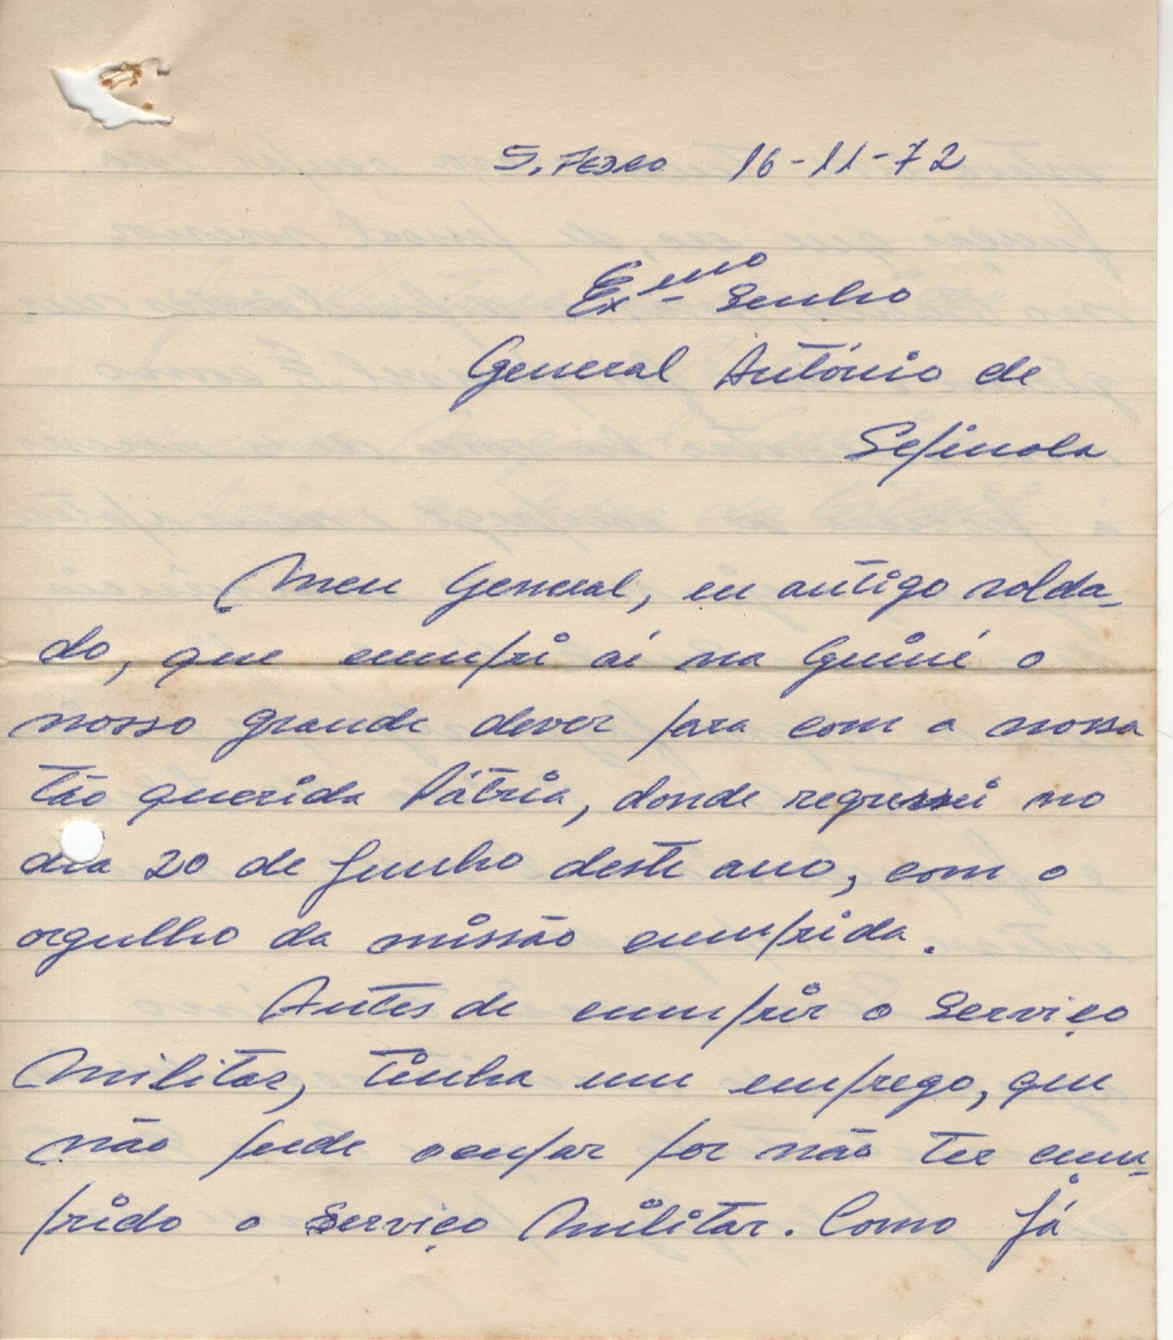 S. Pedro 16-11-72
Exmo Senho
General António de
Sepinola
Meu General, eu antigo solda-
do, que cumpri aí na Guiné o
nosso grande dever para com a nossa
tão querida Pátria, donde regressei no
dia 20 de Junho deste ano, com o
orgulho da missão cumprida.
Antes de cumprir o Serviço
Militar, tinha um emprego, que
não pude ocupar por não ter cum-
prido o Serviço Militar. Como Já